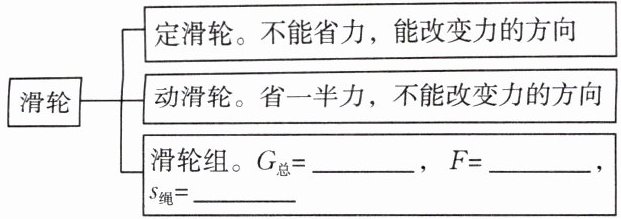 定滑轮。不能省力，能改变力的方向
滑轮
动滑轮。省一半力，不能改变力的方向
滑轮组。G总=________，F=________，
s绳=________